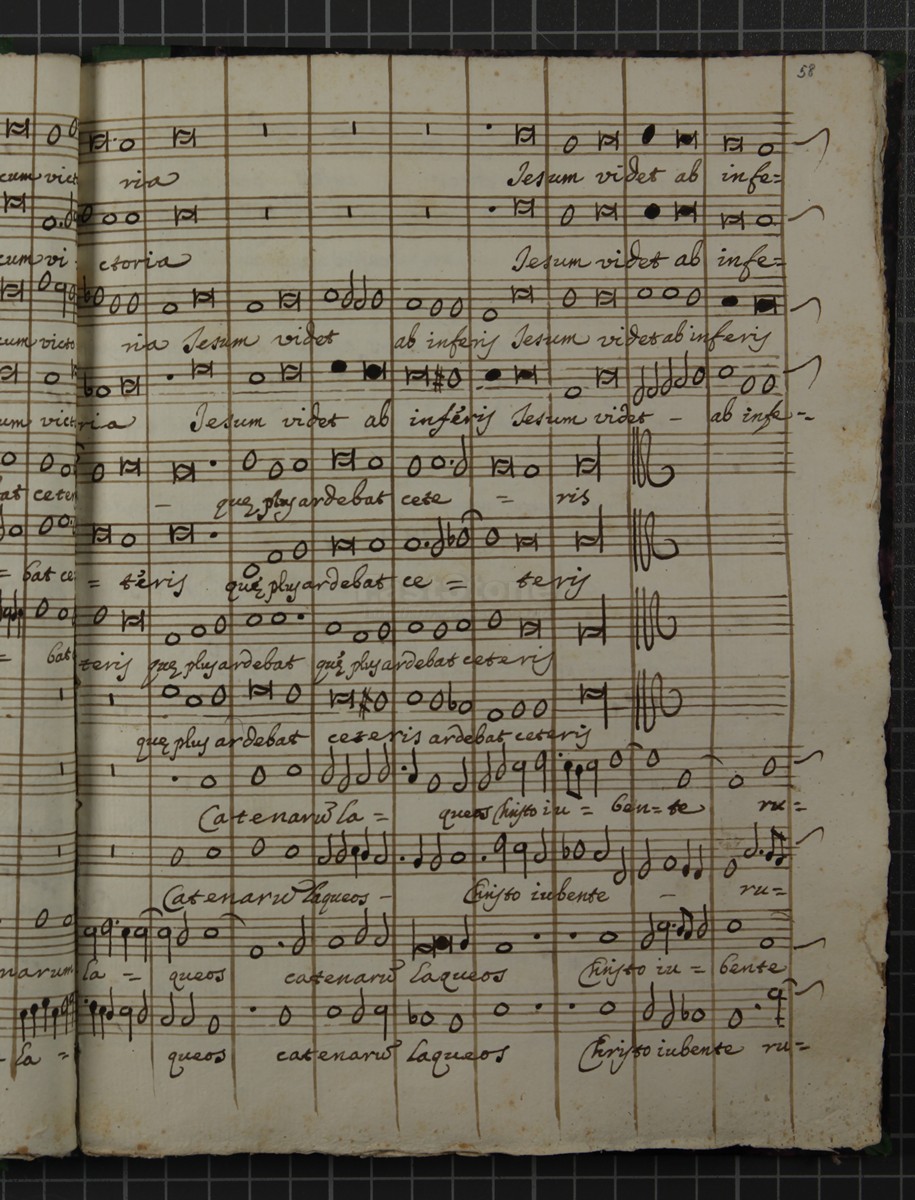 58
cum vict ria Jesum videt ab infe=
cum vi ctoria Jesum videt ab infe=
cum victo ria Jesum videt ab inferis Jesum videt ab inferis
um vict ria Jesum videt ab inferis Jesum videt - ab infe-
bat ceter - quę plus ardebat cete = ris
= bat ce = teris quę plus ardebat ce = teris
= bat teris quę plus ardebat quę plus ardebat ceteris
quę plus ardebat ceteris ardebat ceteris
Catenarũ la = queos Christo iu = ben = te ru =
Catenarũ laqueos - Christo iubente - ru=
narum la = queos catenarũ laqueos Christo iu = bente
- la = queos catenarũ laqueos Christo iubente ru=